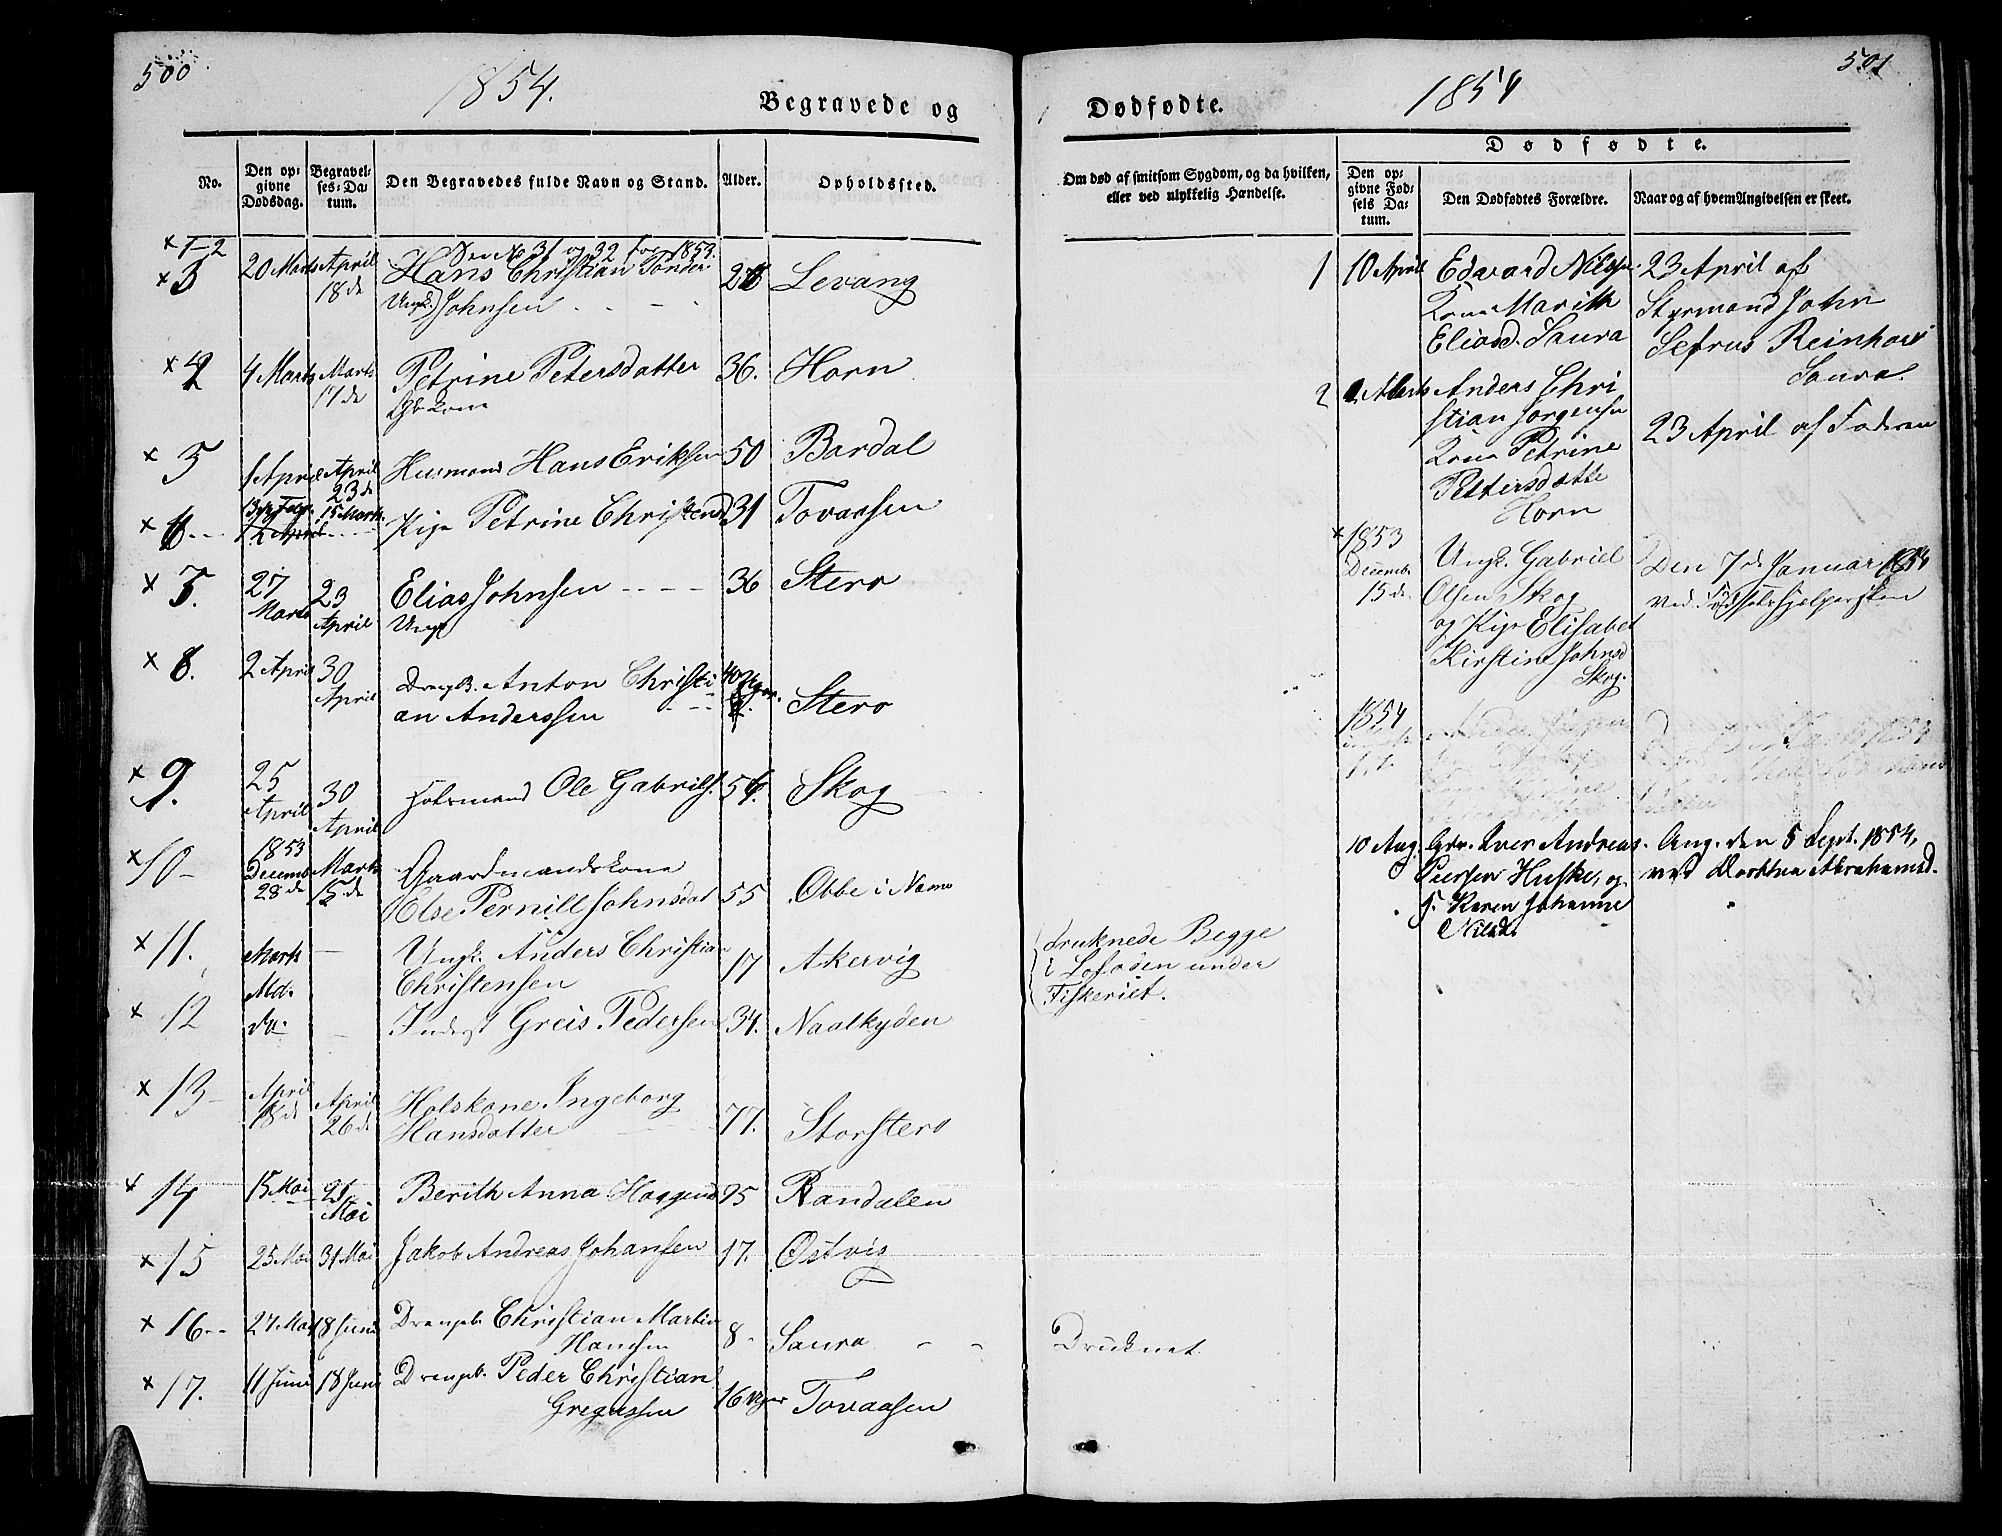 500
1854.
Begravede og
No.
Den opgivne Dødsdag.
Begravelses-Datum.
Den Begravedes fulde Navn og Stand.
Alder.
Opholdssted.
× 1-2 See No 31 og 32 for 1853.
× 3 20 Marts April 18de Hans Christian Tønder 26 Levang
Ungk. Johnsen
× 4 4 Marts Marts 17de Petrine Petersdatter 36. Horn
Gb Kone
× 5 1 April April 23de Husmand Hans Eriksen 50 Bardal
× 6 15 Marts Pige Petrine Christensd 31 Tovaasen
× 7. 27 Marts 23 April Elias Johnsen 36 Stero
Ungk
× 8. 2 April 30 April Drengb. Anton Christi
an Anderssen Stero
× 9. 25 April 30 April Ole Gabriels. 54. Skog
× 10 1853 Decemb 28de Marts 15de Gaardmandskone
Else Pernill Johnsdat 55 Obbe i Næsne
× 11. Marts Md. Ungk. Anders Christian
Christensen 17 Akervig
× 12 Do. Inderst Greis Pedersen 34. Naalkyden
× 13 April 18de April 26de Holskone Ingeborg
Hansdatter 77. Storstero
× 14 15 Mai 21 Mai Berith Anna Haggensd 25 Randalen
× 15 25 Mai 31 Mai Jakob Andreas Johansen 17. Østvig
× 16 27 Mai 18 Juni Drengeb. Christian Martin
Hansen 8 Saura
× 17. 11 Juni 18 Juni Drengeb. Peder Christian
Gregussen 16 Uger Tovaasen
501
1854
Dødfødte.
Om død af smitsom Sygdom, og da hvilken,
eller ved ulykkelig Hændelse.
Dødfødte.
Den opgivne Fødsels Datum.
Den Dødfødtes Forældre.
Naar og af hvem Angivelsen er skeet.
1 10 April Edvard Nilsen 23 April af
Kone Marith Styrmand John
Eliasd. Saura Sefrus Reinhart
Saura.
2 Marts Anders Chri
stian Jørgensen 23 April af Faderen
Kone Petrine
Pettersdatte
Horn
× 1853
Decemb 15de Ungk. Gabriel Den 7de Januar 1854
Olsen Skog ved Fødselshjelpersken
og Pige Elisabet
Kirstine Johnsd
Skog.
1854
10 Aug. Gm. Iver Andreas Ang. den 5 Sept. 1854,
Peersen Huske, og ved Dorthea Abrahamsd.
Karen Johanne
Nilsd.
druknede Begge
i Lofoden under
Fiskeriet.
Druknet